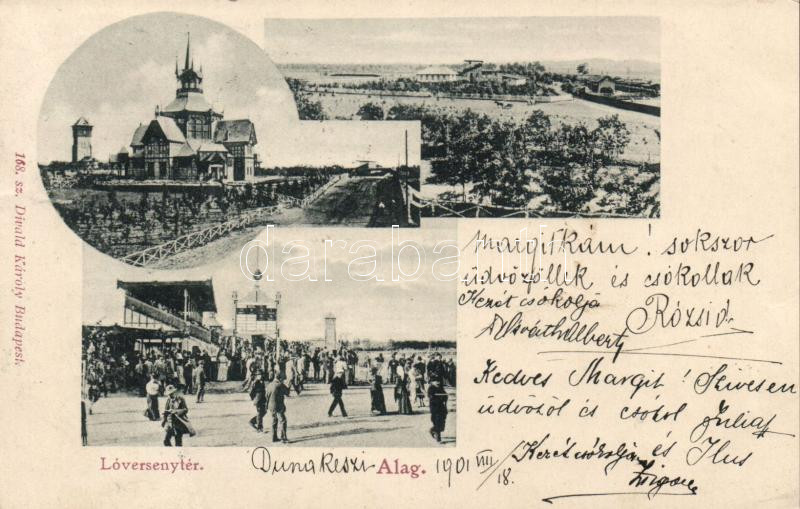 168. sz. Divald Károly Budapest.
darabanth
Margitkám! sokszor
üdvözöllek és csókollak
Rózsid.
Kezét csokolja
Albert
Kedves Margit! Szivesen
üdvözöl és csókol Julia
és Ilus
Kezét csókolja
Lóversenytér.
Dunakeszi Alag. 1901 VIII/18.